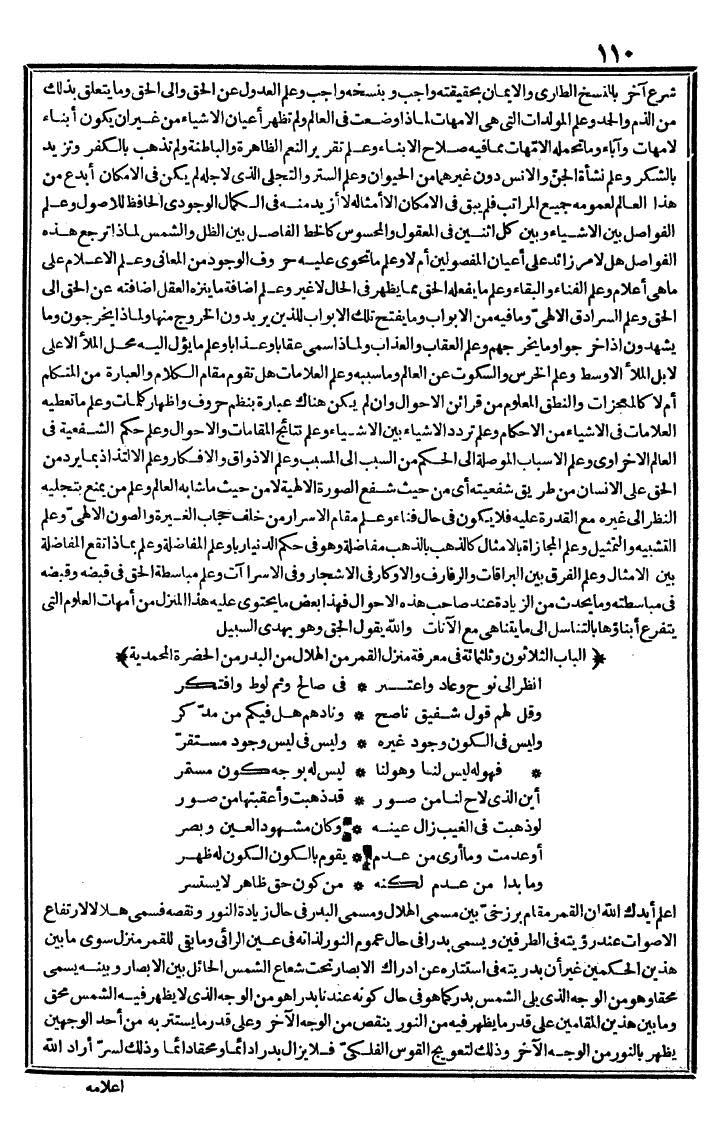 ١١٠
شرع آخر بالنسخ الطارى والايمان بحقيقته واجب وبنسخه واجب وعلم العدول عن الحق والى الحق وما يتعلق بذلك
من الذم والحد وعلم المولدات التى هى الامهات لماذا وضعت فى العالم ولم تظهر أعيان الاشياء من غير ان يكون أبناء
لامهات وآباء وما تحمله الامّهات مما فيه صلاح الابناء وعلم تقرير النعم الظاهرة والباطنة ولم تذهب بالكفر وتزيد
بالشكر وعلم نشأة الجنّ والانس دون غيرهما من الحيوان وعلم الستر والتجلى الذى لاجله لم يكن فى الامكان أبدع من
هذا العالم لعمومه جميع المراتب فلم يبق فى الامكان الا أمثاله لا أزيد منه فى الكمال الوجودى الحافظ للاصول وعلم
الفواصل بين الاشياء وبين كل اثنين فى المعقول والمحسوس كالخط الفاصل بين الظل والشمس لماذا ترجع هذه
الفواصل هل لامر زائد على أعيان المفصولين أم لا وعلم ما تحوى عليه حروف الوجود من المعانى وعلم الاعلام على
ماهى أعلام وعلم الفناء والبقاء وعلم ما يفعله الحق مما يظهر فى الحال لا غير وعلم اضافة ما ينزه العقل اضافته عن الحق الى
الحق وعلم السرادق الالهىّ وما فيه من الابواب وما يفتح تلك الابواب للذين يريدون الخروج منها ولماذا يخرجون وما
يشهدون اذا خرجوا وما يخرجهم وعلم العقاب والعذاب ولماذا سمى عقابا وعذابا وعلم ما يؤل اليه محل الملأ الاعلى
لا بل الملأ الاوسط وعلم الخرس والسكوت عن العالم وما سببه وعلم العلامات هل تقوم مقام الكلام والعبارة من المتكلم
أم لا كالمعجزات والنطق المعلوم من قرائن الاحوال وان لم يكن هناك عبارة بنظم حروف واظهار كلمات وعلم ما تعطيه
العلامات فى الاشياء من الاحكام وعلم تردد الاشياء بين الاشياء وعلم نتائج المقامات والاحوال وعلم حكم الشفعية فى
العالم الاخراوى وعلم الاسباب الموصلة الى الحكم من السبب الى المسبب وعلم الاذواق والافكار وعلم الالتذاذ بما يرد من
الحق على الانسان من طريق شفعيته أى من حيث شفع الصورة الالهية لا من حيث ما شابه العالم وعلم من يمنع بتجليه
النظر الى غيره مع القدرة عليه فلا يكون فى حال فناء وعلم مقام الاسرار من خلف حجاب الغيرة والصون الالهىّ وعلم
التشبيه والتمثيل وعلم المجازاة بالامثال كالذهب بالذهب مفاضلة وهو فى حكم الدنيا ربا وعلم المفاضلة وعلم بماذا تقع المفاضلة
بين الامثال وعلم الفرق بين البراقات والرفارف والاوكار فى الاشجار وفى الاسراآت وعلم مباسطة الحق فى قبضه وقبضه
فى مباسطته وما يحدث من الزيادة عند صاحب هذه الاحوال فهذا بعض ما يحتوى عليه هذا المنزل من أمهات العلوم التى
يتفرع أبناؤها بالتناسل الى ما يتناهى مع الآنات والله يقول الحق وهو يهدى السبيل
﴿ الباب الثلاثون وثلثمائة فى معرفة منزل القمر من الهلال من البدر من الحضرة المحمدية ﴾
انظر الى نوح وعاد واعتبر * فى صالح وثم لوط وافتكر
وقل لهم قول شفيق ناصح * ونادهم هل فيكم من مدّكر
وليس فى الكون وجود غيره * وليس فى ليس وجود مستقرّ
* فهو له ليس لنا وهو لنا * ليس له بوجه كون مستمر
أين الذى لاح لنا من صور * قد ذهبت وأعقبتها من صور
لو ذهبت فى الغيب زال عينه * وكان مشهود العين وبصر
أو عدمت وما أرى من عدم * يقوم بالكون الكون له ظهر
وما بدا من عدم لكنه * من كون حق ظاهر لا يستسر
اعلم أيدك الله ان القمر مقام برزخىّ بين مسمى الهلال ومسمى البدر فى حال زيادة النور ونقصه فسمى هلالا لارتفاع
الاصوات عند رؤيته فى الطرفين ويسمى بدرا فى حال عموم النور لذاته فى عين الرائى وما بقى للقمر منزل سوى ما بين
هذين الحكمين غير أن بدريته فى استتاره عن ادراك الابصار تحت شعاع الشمس الحائل بين الابصار وبينه يسمى
محقا وهو من الوجه الذى يلى الشمس بدر كما هو فى حال كونه عندنا بدرا هو من الوجه الذى لا يظهر فيه الشمس محق
وما بين هذين المقامين على قدر ما يظهر فيه من النور ينقص من الوجه الآخر وعلى قدر ما يستتر به من أحد الوجهين
يظهر بالنور من الوجه الآخر وذلك لتعويج القوس الفلكىّ فلا يزال بدرا دائما ومحقا دائما وذلك لسرّ أراد الله
اعلامه